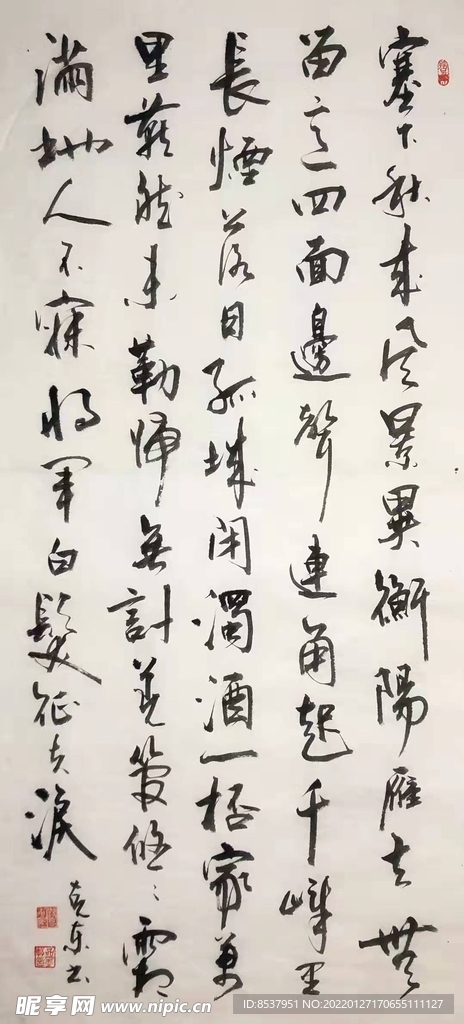 塞下秋来风景異衡陽雁去無
留意四面邊聲連角起千嶂里
長煙落日孤城闭濁酒一杯家萬
里燕然未勒歸無計羌管悠〻霜
滿地人不寐将軍白髮征夫淚
克东书
昵享网 www.nipic.cn
ID:8537951 NO:20220127170655111127